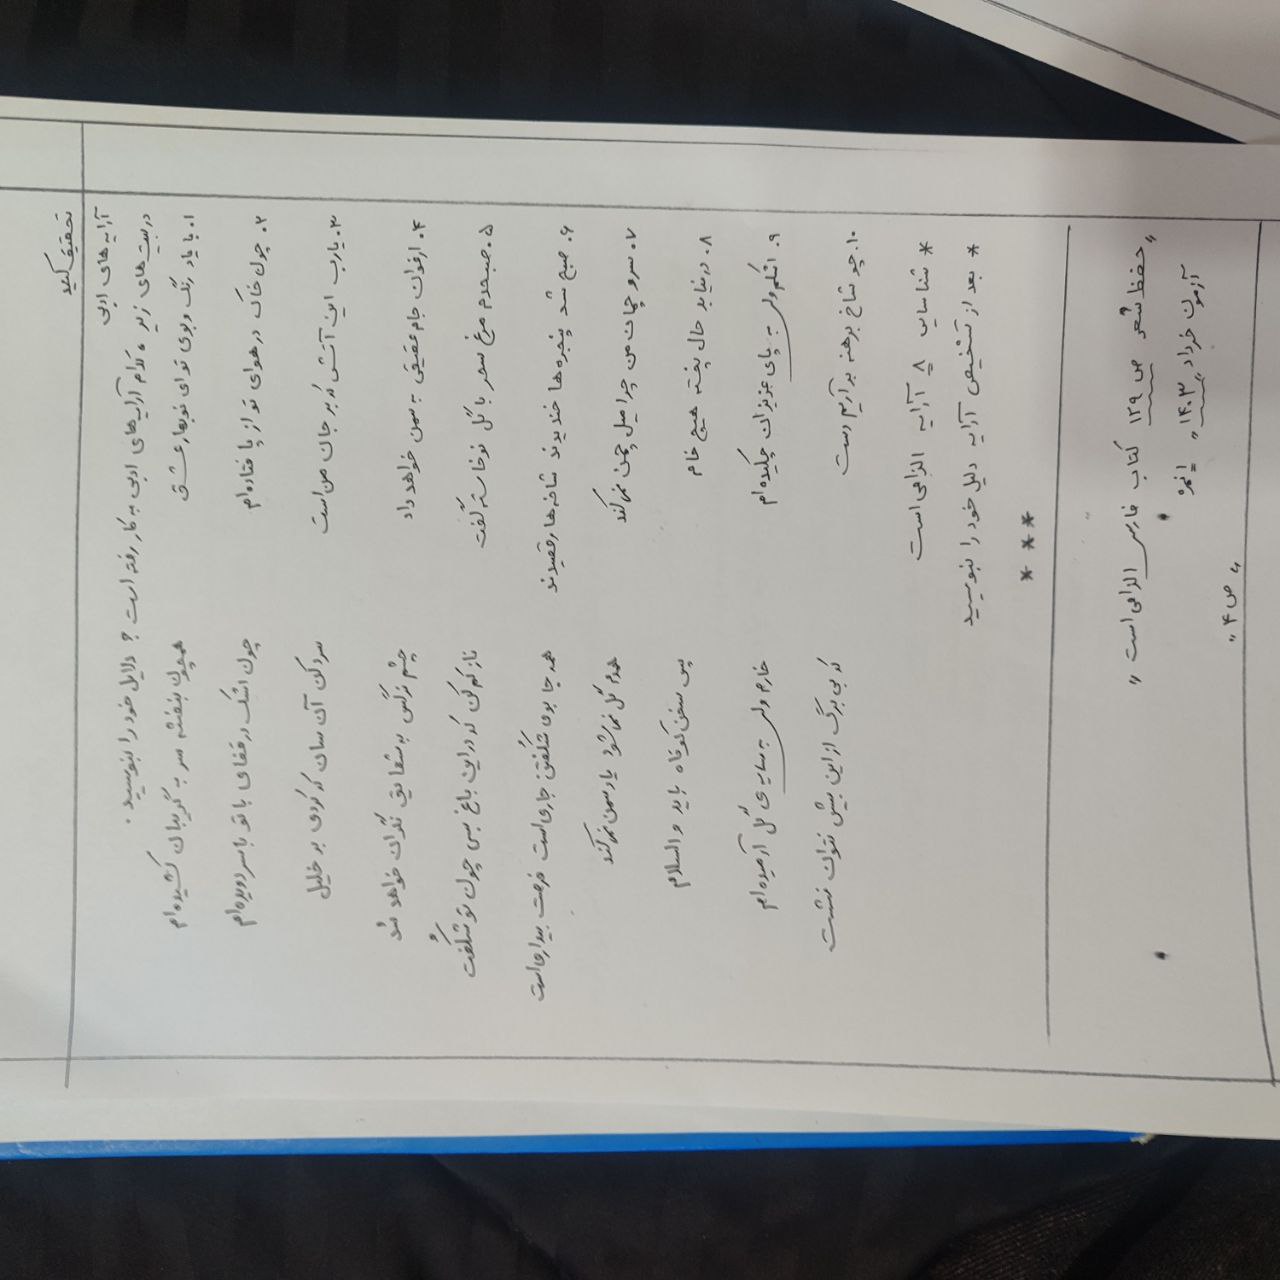 تحقیق کنید
آرایه های ادبی
در بیت های زیر، کدام آرایه های ادبی به کار رفته است؟ دلایل خود را بنویسید.
۱. با یاد رنگ و بوی تو ای نوبهار عشق همچون بنفشه سر به گریبان کشیده ام
۲. چون خاک در هوای تو از پا فتاده ام چون اشک در قفای تو با سر دویده ام
۳. یارب این آتش که بر جان من است سرد کن آن سان که کردی بر خلیل
۴. ارغوان جام عقیقی به سمن خواهد داد چشم نرگس به شقایق نگران خواهد شد
۵. صبحدم مرغ سحر با گل نوخاسته گفت ناز کم کن که در این باغ بسی چون تو شکفت
۶. صبح شد پنجره ها خندیدند شاخه ها رقصیدند همه جا بوی شکفتن جاری است فرصت بیداری است
۷. سرو چمان من چرا میل چمن نمی کند همدم گل نمی شود یاد سمن نمی کند
۸. درنیابد حال پخته هیچ خام پس سخن کوتاه باید والسلام
۹. اشکم ولی به پای عزیزان چکیده ام خارم ولی به سایه ی گل آرمیده ام
۱۰. چو شاخ برهنه برآریم دست که بی برگ از این بیش نتوان نشست
* شناسایی ۸ آرایه الزامی است
* بعد از تشخیص آرایه دلیل خود را بنویسید
* * *
" حفظ شعر ص ۱۲۹ کتاب فارسی الزامی است "
آزمون خرداد ۱۴۰۳ " ۱ نمره
" ص ۴ "